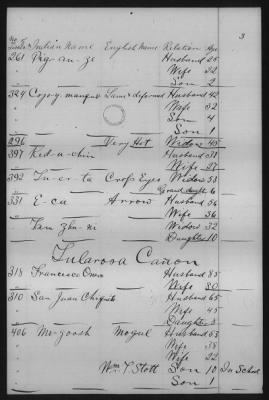 3
No Indian Name English Name Relation Age
261 Husband 25
" Wife 22
" Son 2
324 Lame & deformed Husband 42
" Wife 32
" Son 4
" Son 1
296 Very Hot Widow 45
397 Husband 31
" Wife
392 Cross Eyes Widow
" Grand daught. 6
331 E-cu Arrow Husband 56
" Wife 36
" Widow 52
" Daughter 10
Tularosa Cañon
318 Francisco Husband 85
" Wife 80
310 San Juan Chiquito Husband 65
" Wife 45
" Daughter 3
406 Mo-gosh Mogul Husband 63
" Wife 38
" Wife 22
" Wm T. Stott Son 10 In School
" Son 1